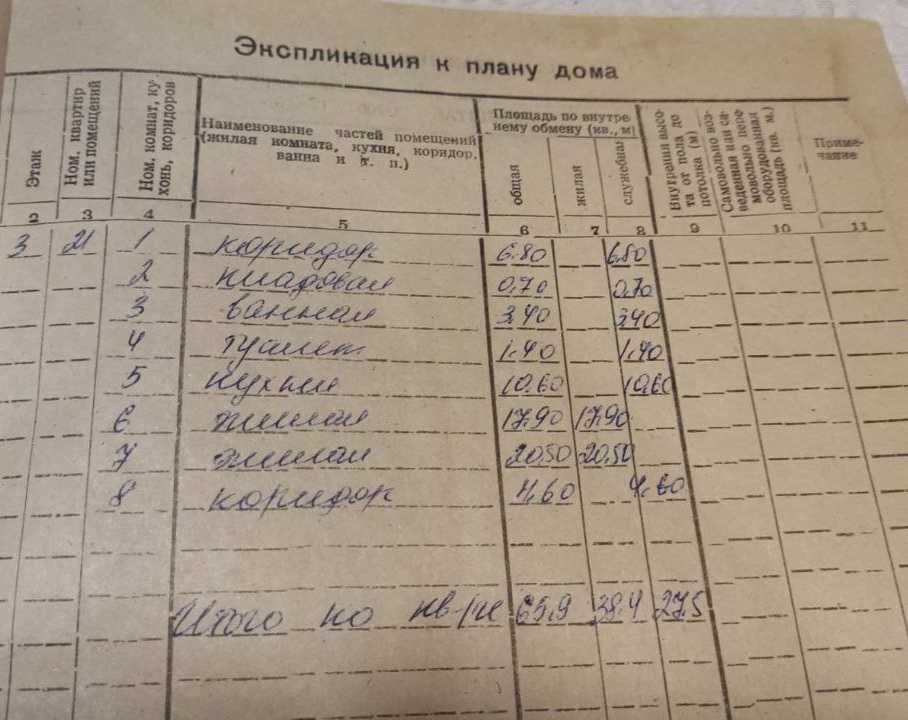 Экспликация к плану дома
Этаж
Ном. квартир или помещений
Ном. комнат, кухонь, коридоров
Наименование частей помещений
(жилая комната, кухня, коридор,
ванна и т. п.)
Площадь по внутрен-
нему обмену (кв., м)
общая
жилая
служебная
Внутренняя высота от пола до потолка (м)
Самовольно возведенная или самовольно переоборудованная площадь (кв. м.)
Приме-
чание
2 3 4 5 6 7 8 9 10 11
3 21 1 коридор 6.80 6.80
2 кладовая 0,70 0,70
3 ванная 3,40 3,40
4 туалет 1,40 1,40
5 кухня 10.60 10.60
6 жилая 17,90 17,90
7 жилая 20,50 20,50
8 коридор 4,60 4.60
Итого по кв-ре 65,9 38,4 27,5